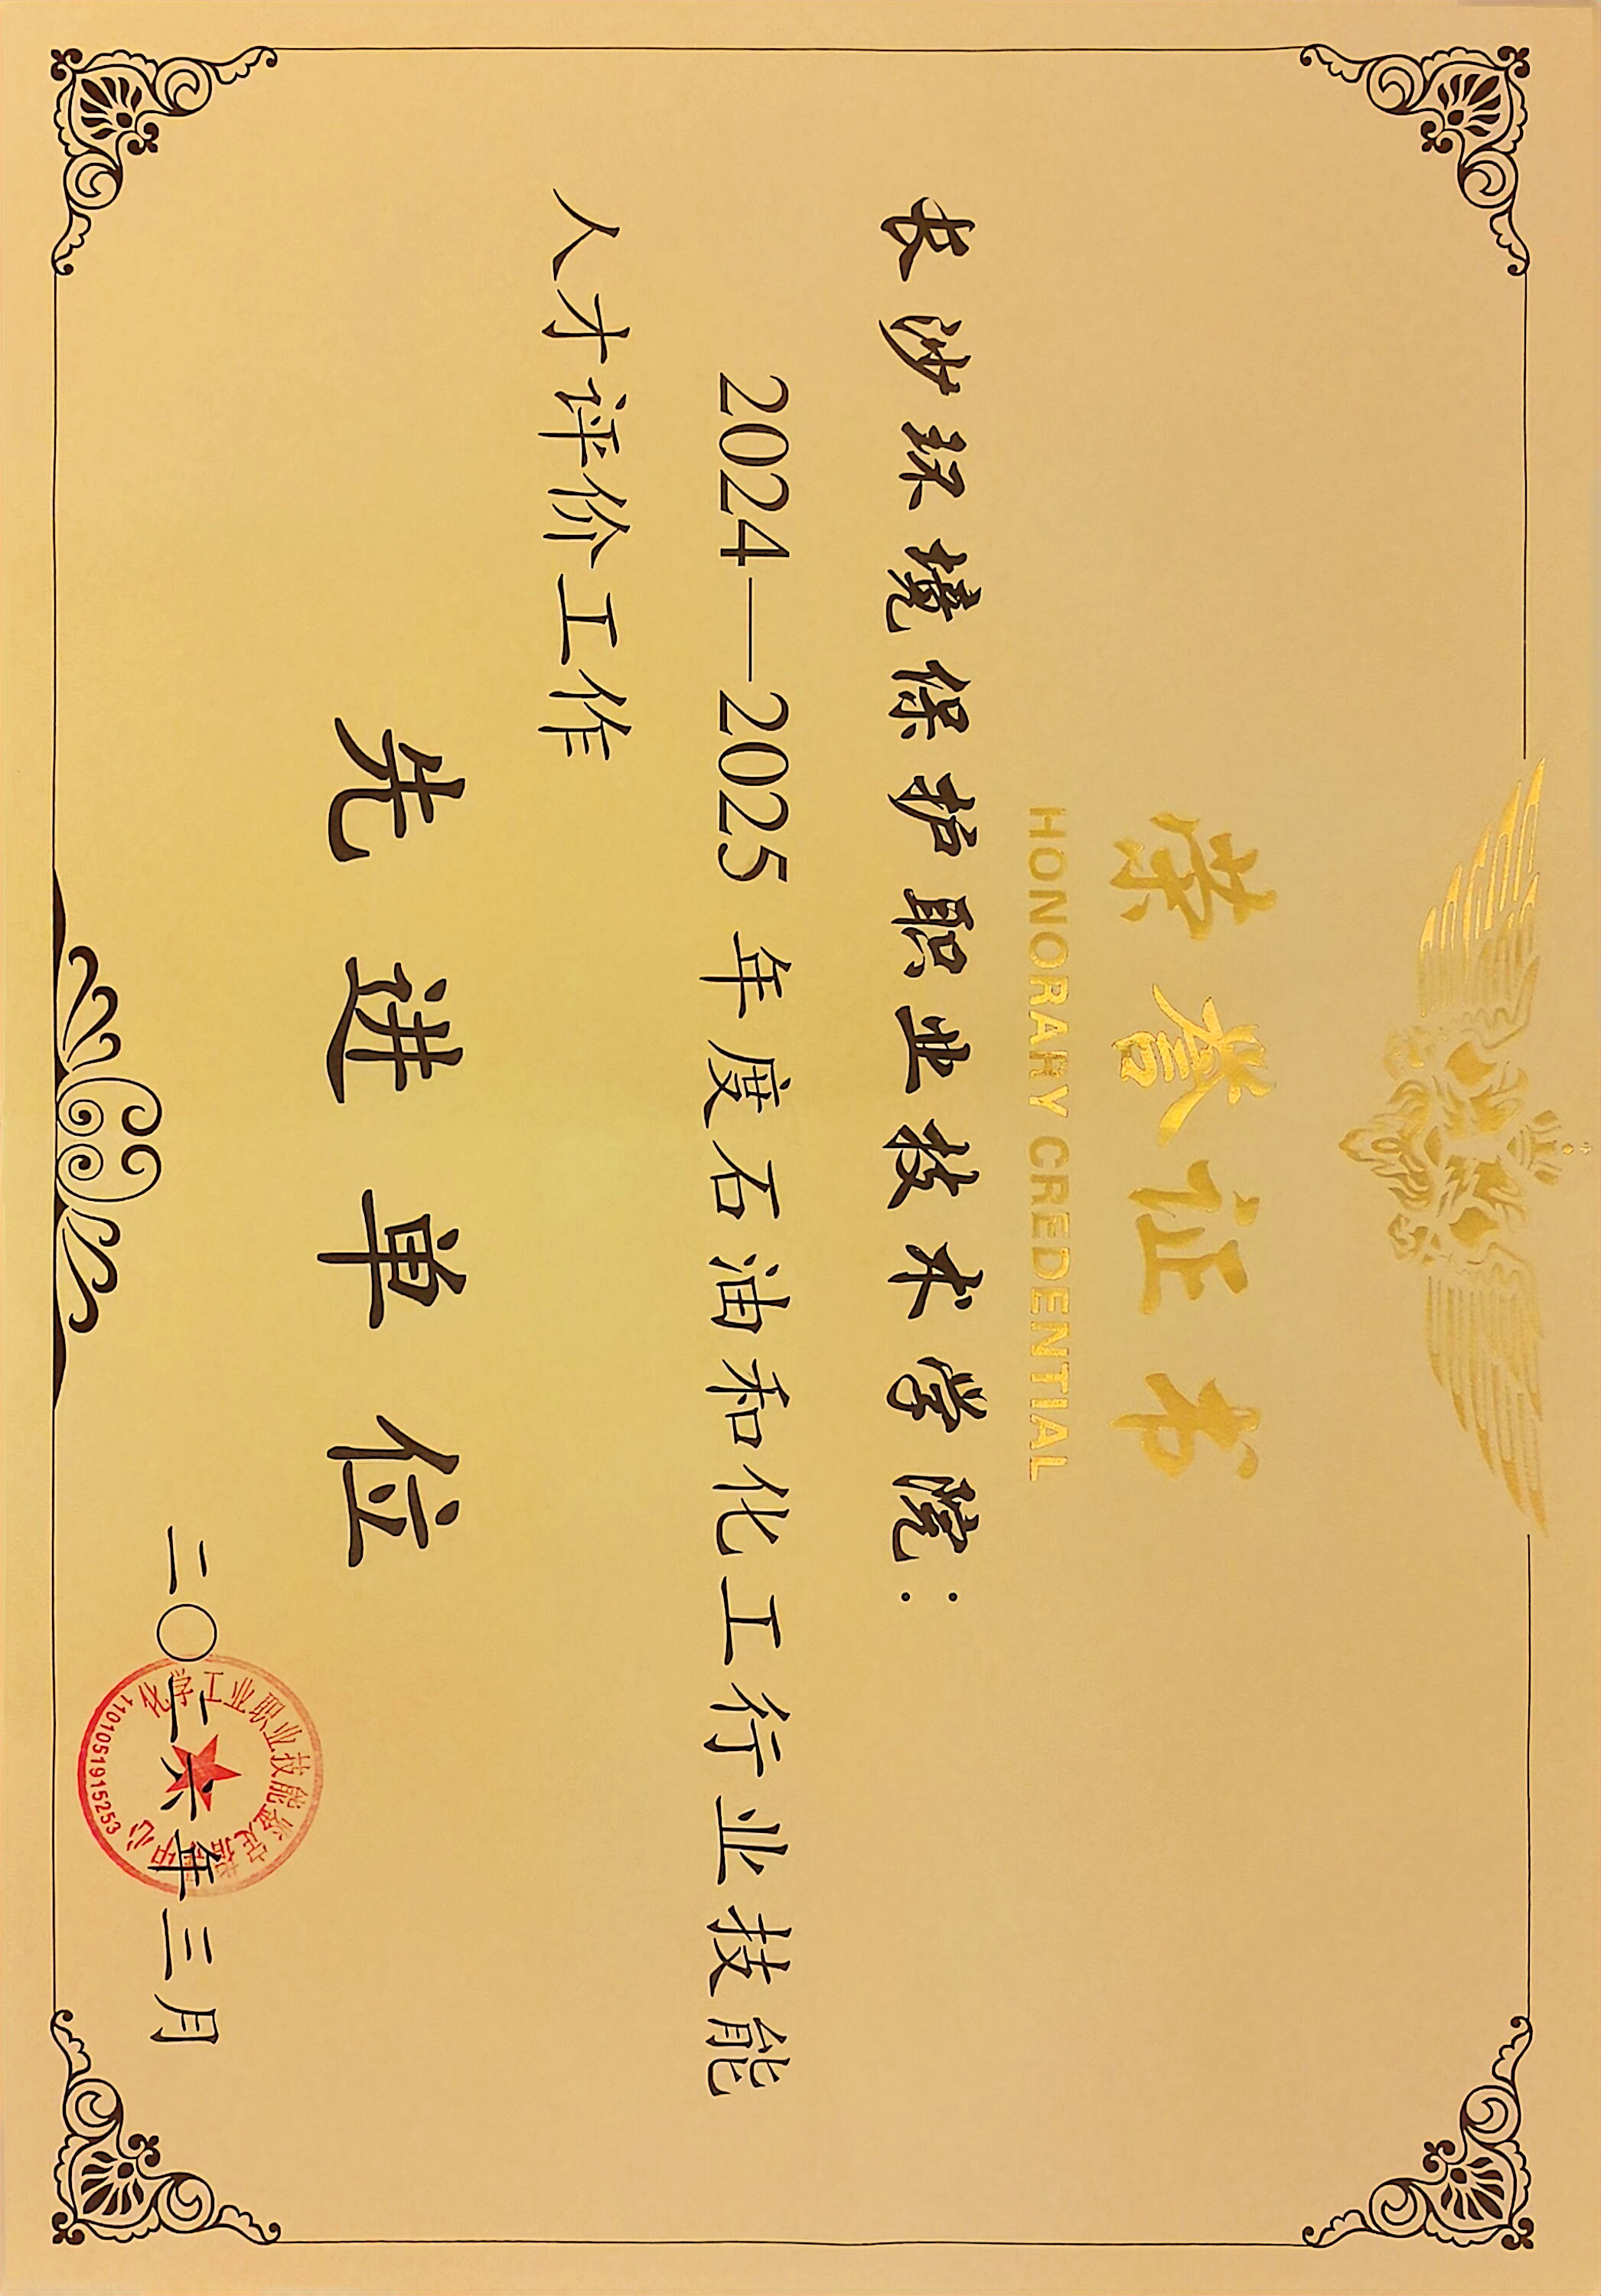 荣誉证书
HONORARY CREDENTIAL
长沙环境保护职业技术学院：
2024—2025年度石油和化工行业技能
人才评价工作
先进单位
二〇二六年三月
化学工业职业技能鉴定指导中心
1101051915253